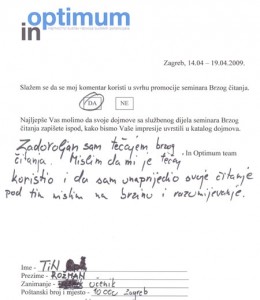 optimum
in
Zagreb, 14.04 – 19.04.2009.
Slažem se da se moj komentar koristi u svrhu promocije seminara Brzog čitanja.
DA NE
Najljepše Vas molimo da svoje dojmove sa službenog dijela seminara Brzog
čitanja zapišete ispod, kako bismo Vaše impresije uvrstili u katalog dojmova.
- In Optimum team
Zadovoljan sam tečajem brzog
čitanja. Mislim da mi je tečaj
koristio i da sam unaprijedio svoje čitanje
pod tim mislim na brzinu i razumijevanje.
Ime - TIN
Prezime - ROŽMAN
Zanimanje - učenik
Poštanski broj i mjesto - 10 000 Zagreb